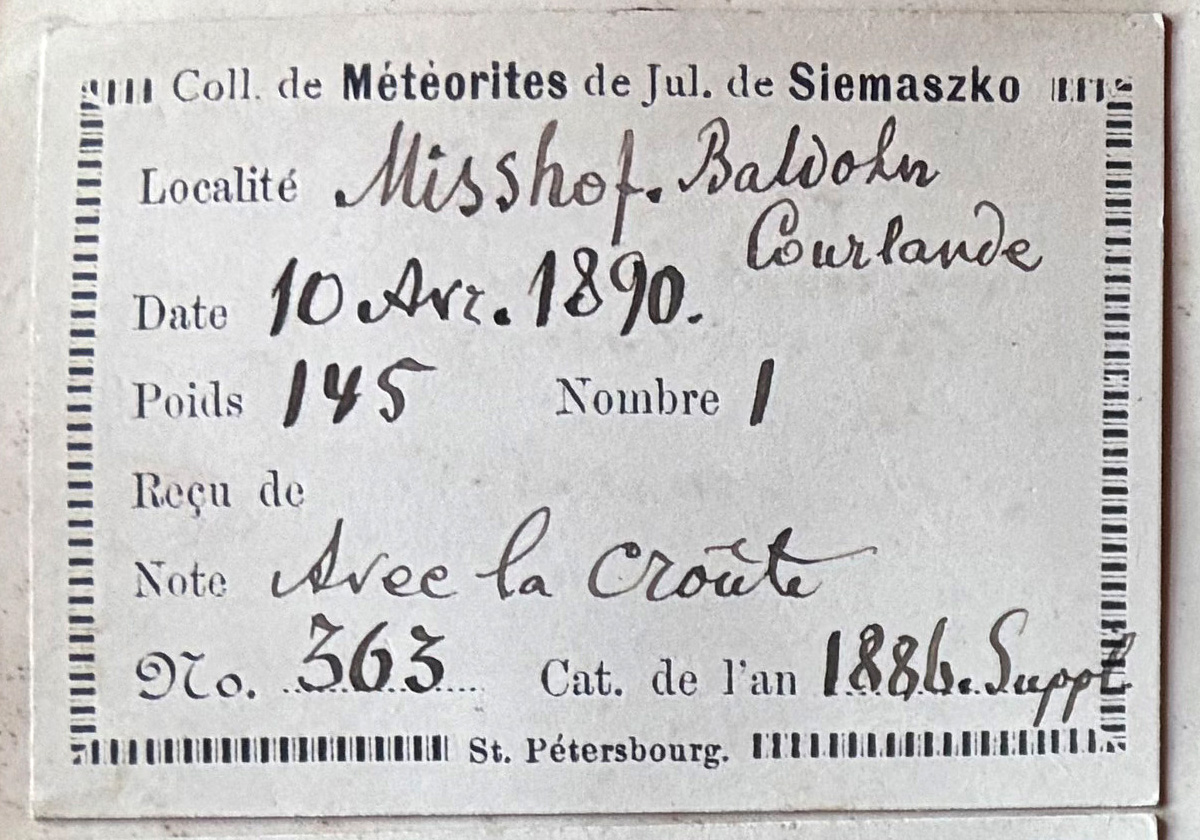 Coll. de Métėorites de Jul. de Siemaszko
Localité Misshof. Baldohn
Courlande
Date 10 Avr. 1890.
Poids 145 Nombre 1
Reçu de
Note Avec la croûte
No. 363 Cat. de l'an 1886. Suppl
St. Pétersbourg.